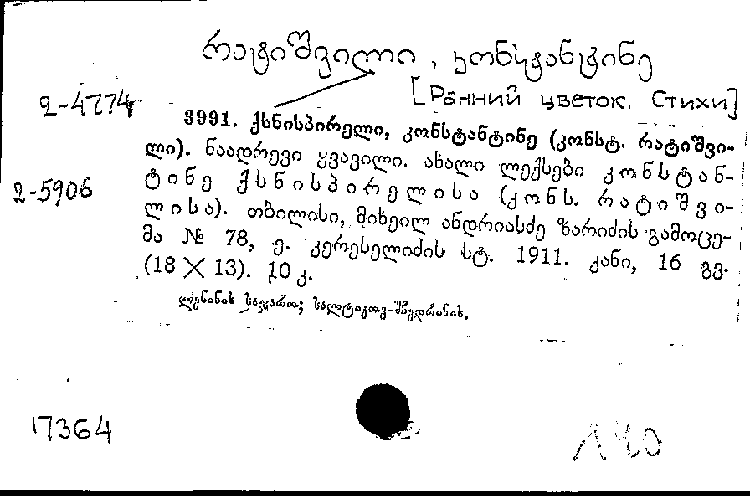 რატიშვილი, კონსტანტინე
[Ранний цветок. Стихи]
2-4774
3991. ქსნისპირელი, კონსტანტინე (კონსტ. რატიშვი-
ლი). ნაადრევი ყვავილი. ახალი ლექსები კონსტან-
2-5906
ტინე ქსნისპირელისა (კონს. რატიშვი-
ლისა). თბილისი, მიხეილ ანდრიასძე ზარიძის გამოცე-
მა № 78, ე. კერესელიძის სტ. 1911. ყანი, 16 გვ.
(18 X 13). 10 კ.
ლენინის საჯარო; სალტიკოვ-შჩედრინის.
17364
140